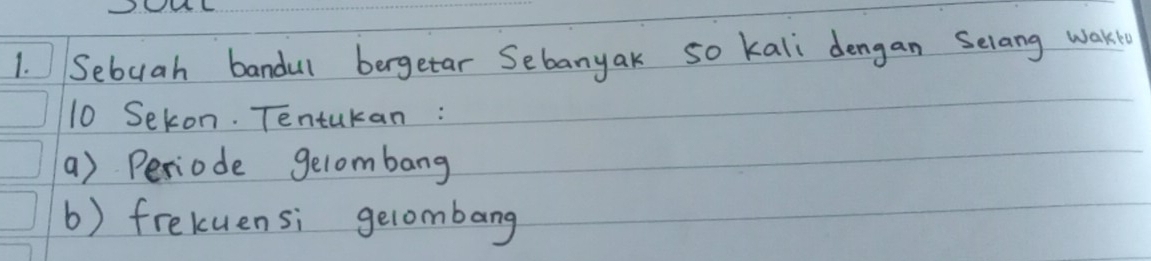 Soal
1. Sebuah bandul bergetar Sebanyak 50 kali dengan Selang waktu
10 Sekon. Tentukan :
a) Periode gelombang
b) frekuensi gelombang